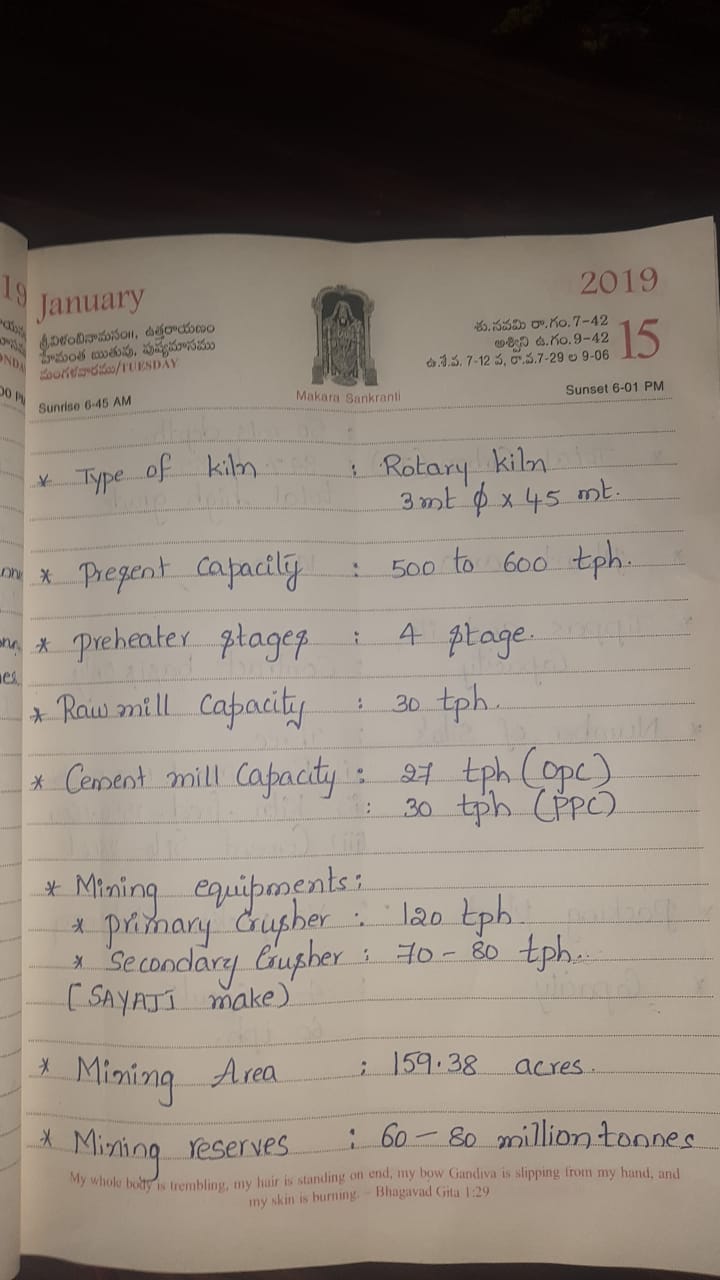 19 January
2019
శ్రీవిళంబినామసం॥, ఉత్తరాయణం
హేమంత ఋతువు, పుష్యమాసము
మంగళవారము/TUESDAY
Sunrise 6-45 AM
Makara Sankranti
శు.నవమి రా.గం.7-42
అశ్విని ఉ.గం.9-42
ఉ.శే.వ. 7-12 వ, రా.వ.7-29 ల 9-06
15
Sunset 6-01 PM
* Type of kiln : Rotary kiln
3mt ϕ x 45 mt.
* Present Capacity : 500 to 600 tph.
* preheater stages : 4 stage.
* Raw mill Capacity : 30 tph.
* Cement mill Capacity : 27 tph (OPC)
: 30 tph (PPC)
* Mining equipments :
* primary Crusher : 120 tph
* Secondary Crusher : 70 - 80 tph..
[SAYAJI make)
* Mining Area : 159.38 acres.
* Mining reserves : 60 - 80 million tonnes
My whole body is trembling, my hair is standing on end, my bow Gandiva is slipping from my hand, and
my skin is burning. – Bhagavad Gita 1:29